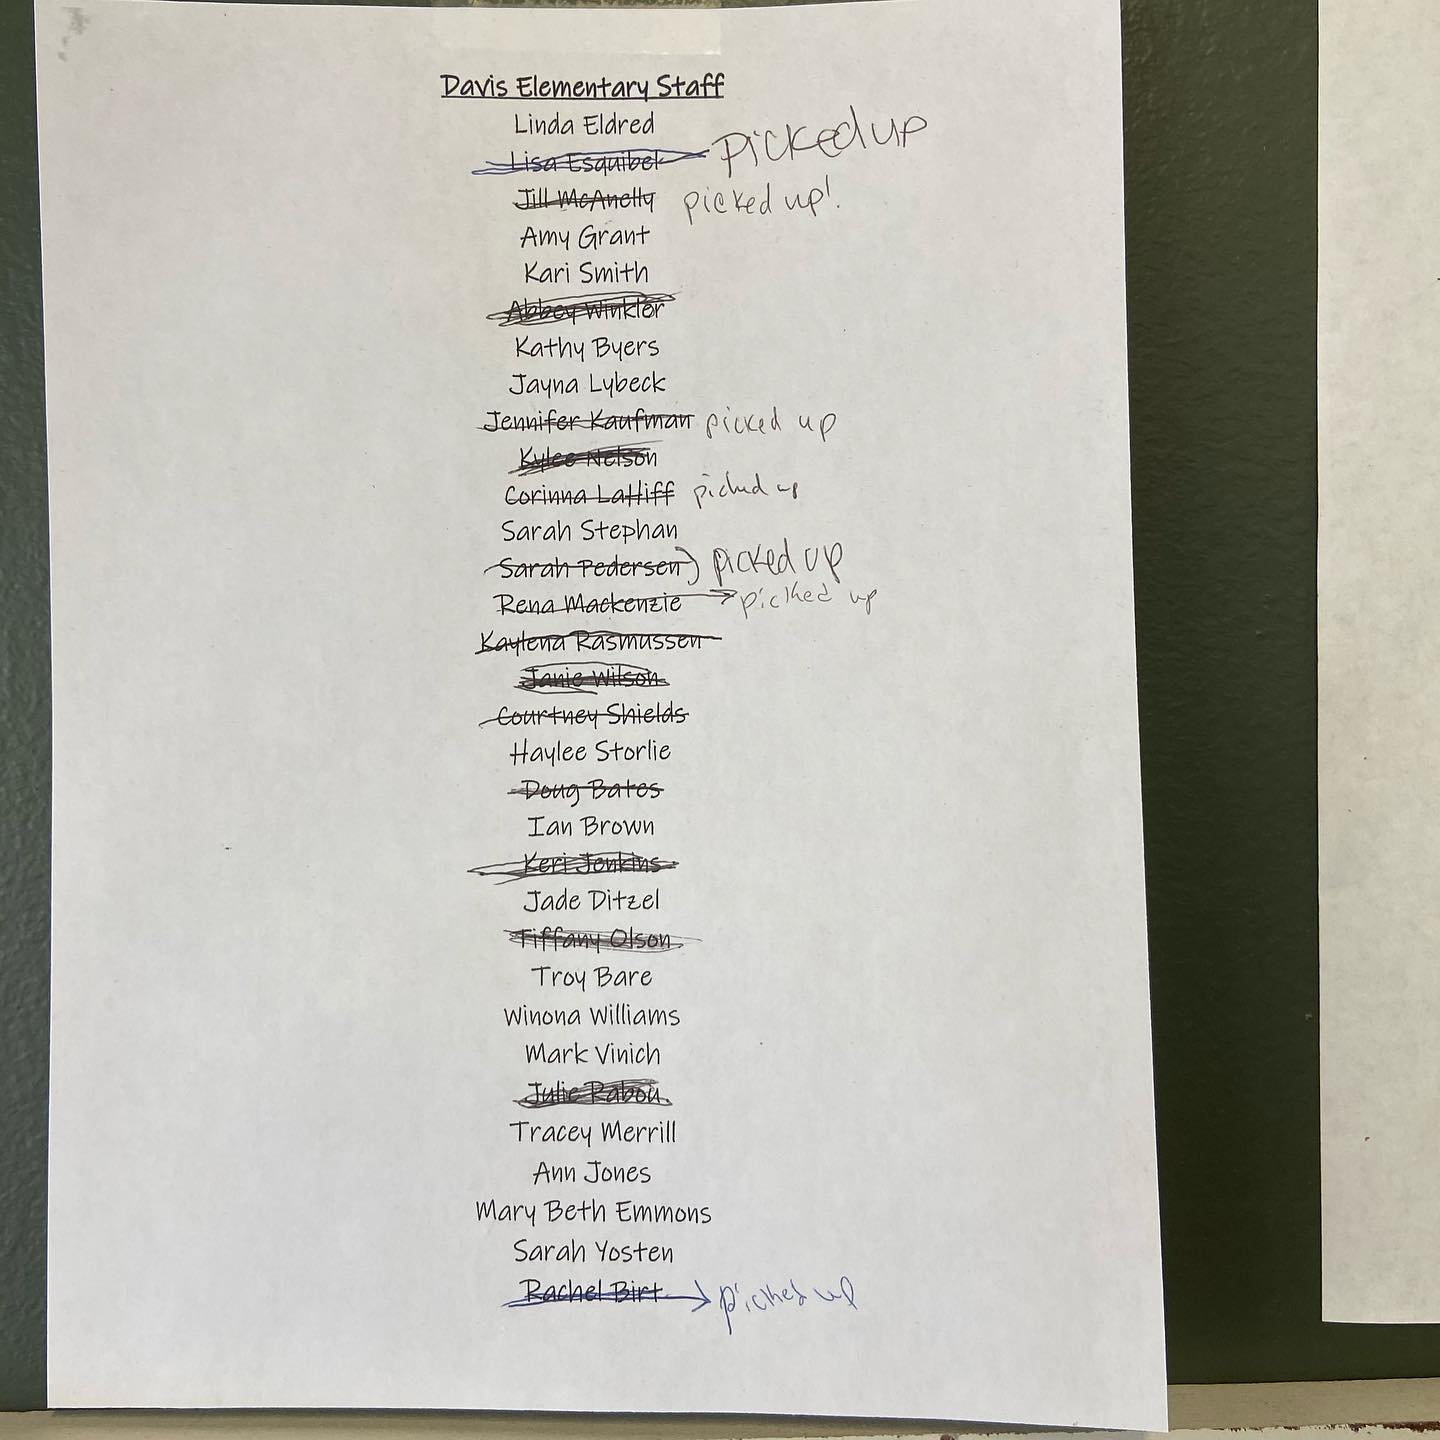 Davis Elementary Staff
Linda Eldred
Lisa Esquibel Picked up
Jill McAnelly picked up!
Amy Grant
Kari Smith
Abbey Winkler
Kathy Byers
Jayna Lybeck
Jennifer Kaufman picked up
Kylee Nelson
Corinna Latliff picked up
Sarah Stephan
Sarah Pedersen) picked up
Rena Mackenzie → picked up
Kaylena Rasmussen
Janie Wilson
Courtney Shields
Haylee Storlie
Doug Bates
Ian Brown
Keri Jenkins
Jade Ditzel
Tiffany Olson
Troy Bare
Winona Williams
Mark Vinich
Julie Rabou
Tracey Merrill
Ann Jones
Mary Beth Emmons
Sarah Yosten
Rachel Birt → picked up